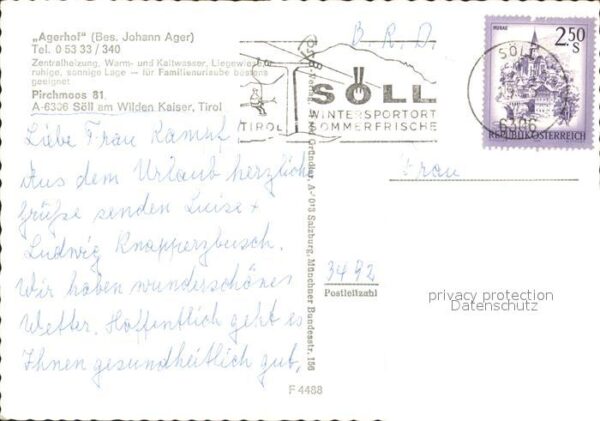 „Agerhof" (Bes. Johann Ager)
Tel. 0 53 33 / 340
Zentralheizung, Warm- und Kaltwasser, Liegewiese
ruhige, sonnige Lage — für Familienurlaube bestens
geeignet
Pirchmoos 81
A-6306 Söll am Wilden Kaiser, Tirol
Liebe Frau Kamm!
Aus dem Urlaub herzliche
Grüße senden Luise +
Ludwig Knapperzbusch.
Wir haben wunderschönes
Wetter. Hoffentlich geht es
Ihnen gesundheitlich gut.
B. R. D.
SÖLL
WINTERSPORTORT
SOMMERFRISCHE
TIROL
Gründler, A-013 Salzburg, Münchner Bundesstr. 156
F 4488
MURAU
2.50
S
REPUBLIK ÖSTERREICH
SÖLL
6306
Frau
3492
Postleitzahl
privacy protection
Datenschutz